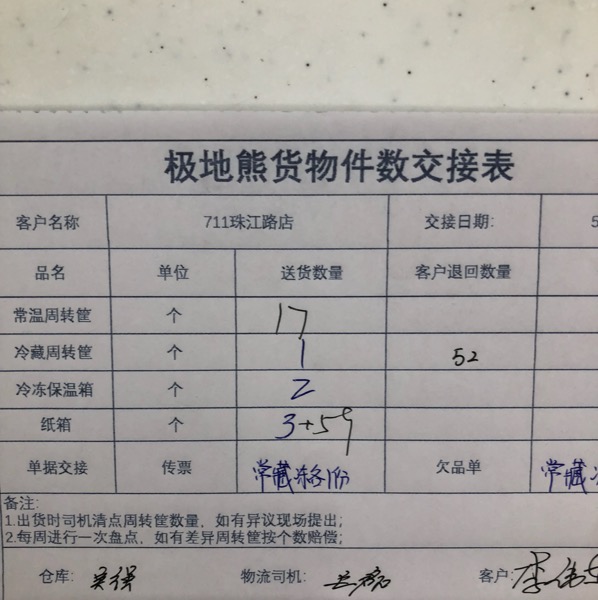 极地熊货物件数交接表
客户名称 711珠江路店 交接日期: 5
品名 单位 送货数量 客户退回数量
常温周转筐 个 17
冷藏周转筐 个 1 52
冷冻保温箱 个 2
纸箱 个 3+5
单据交接 传票 常藏冻各1份 欠品单 常藏
备注:
1.出货时司机清点周转筐数量，如有异议现场提出;
2.每周进行一次盘点，如有差异周转筐按个数赔偿;
仓库: 物流司机: 客户: 李